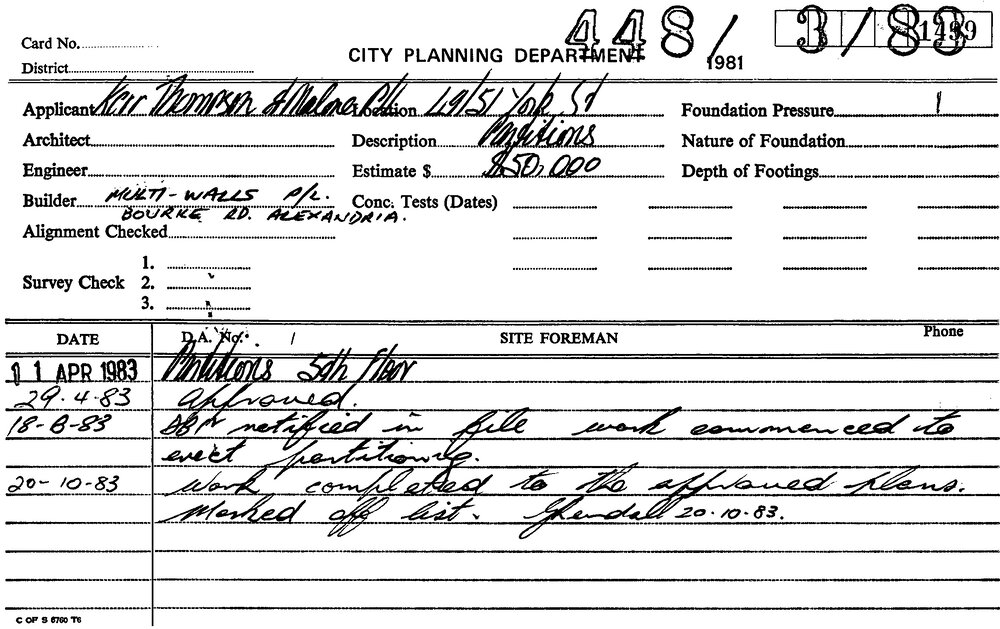 448/ 3/83
1499
Card No.
CITY PLANNING DEPARTMENT
1981
District
Applicant Kerr Thompson & Malone P/L Location 49/51 York St Foundation Pressure
Architect Description Partitions Nature of Foundation
Engineer Estimate $ $50,000 Depth of Footings
Builder MULTI-WALLS P/L. Conc. Tests (Dates)
BOURKE RD. ALEXANDRIA.
Alignment Checked
1.
Survey Check 2.
3.
DATE D.A. No. SITE FOREMAN Phone
11 APR 1983 Partitions 5th Floor
29.4.83 approved.
18-8-83 notified in file work commenced to
erect partitioning.
20-10-83 work completed to the approved plans.
Marked off list. 20.10.83.
C OF S 6760 T6